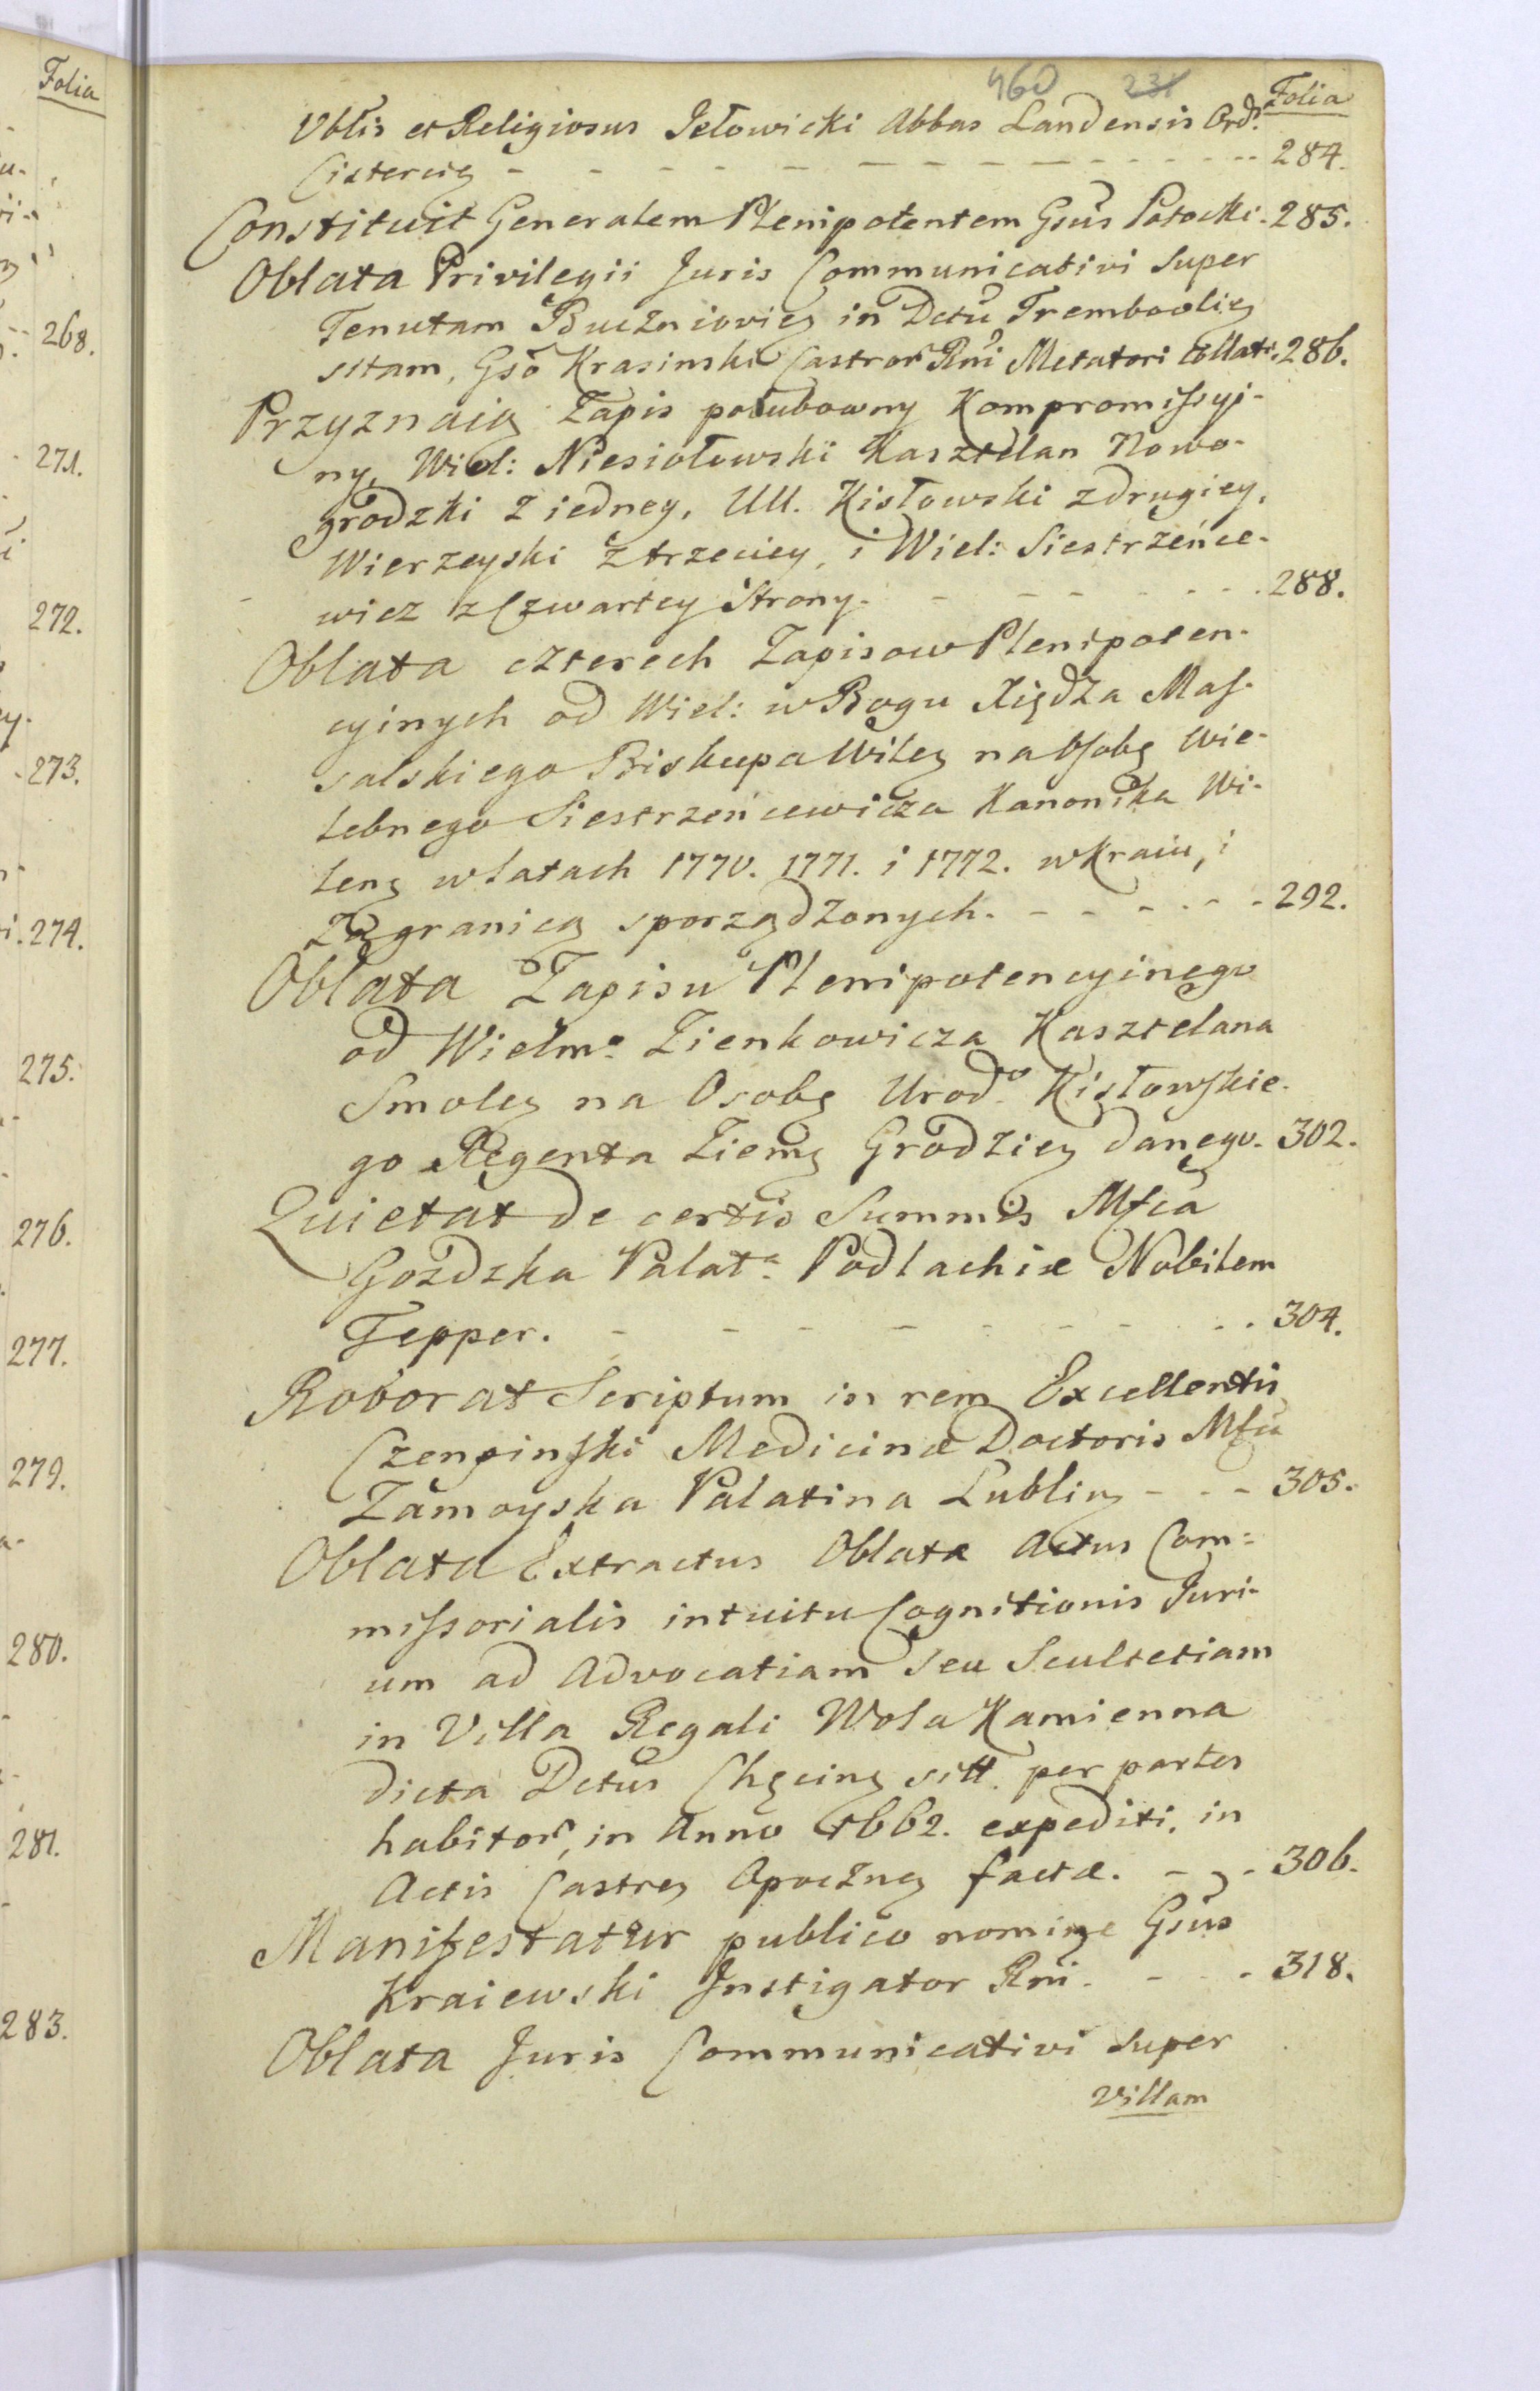 Folia
268.
271.
272.
273.
274.
275.
276.
277.
279.
280.
281.
283.
460 231
Folia
Vblis et Religiosus Jełowicki Abbas Landensis Ord.
Cistercię - - - - 284.
Constituit Generalem Plenipotentem Gsus Potocki. 285.
Oblata Privilegii Juris Communicativi super
Tenutam Buczniovieę in Dctu Trembovlię
sitam, Gso Krasinski Castror Rni Metatori collati. 286.
Przyznaią Zapis polubowny Kompromissyi-
ny, Wiel: Niesiołowski Kasztelan Nowo-
grodzki z iedney, UU. Kisłowski z drugiey,
Wierzeyski z trzeciey, i Wiel: Siestrzeńce-
wicz z Czwartey Strony. - - - 288.
Oblata czterech Zapisow Plenipoten-
cyinych od Wiel: w Bogu Xiędza Mas-
salskiego Biskupa Wileę na Osobę Wie-
lebnego Siestrzeńcewicza Kanonika Wi-
leńę w latach 1770. 1771. i 1772. w Kraiu, i
za granicą sporządzonych. - - - 292.
Oblata Zapisu Plenipotencyinego
od Wielmo. Zienkowicza Kasztelana
Smoleę na Osobę Urodo. Kisłowskie-
go Regenta Ziemę Grodziey danego. 302.
Quietat de certis Summis Mfca
Gozdzka Palata. Podlachiæ Nobilem
Tepper. - - - - 304.
Roborat Scriptum in rem Excellentis
Czenpinski Medicinæ Doctoris Mfca
Zamoyska Palatina Lublinę - - - 305.
Oblata Extractus Oblatæ Actus Com=
missorialis intuitu Cognitionis Juri-
um ad Advocatiam seu Scultetiam
in Villa Regali Wola Kamienna
dicta Dctus Chęcinę sitt. per partes
habitor, in Anno 1662. expediti, in
Actis Castreę Opoczneę factæ. - - - 306.
Manifestatur publico nomine Gsus
Kraiewski Instigator Rni. - - - 318.
Oblata Juris Communicativi super
Villam